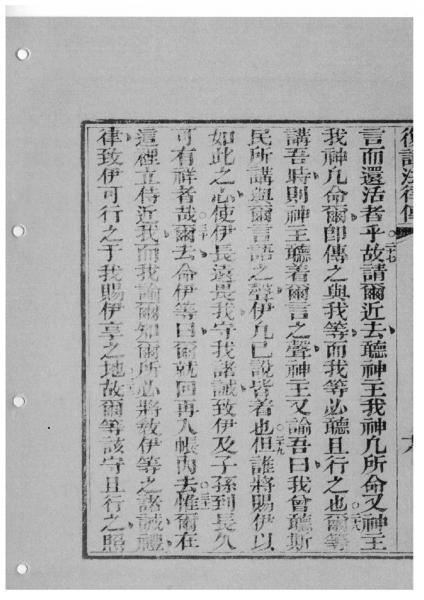 復講法律傳
言而還活者乎○二七故請爾近去聽神王我神凡所命又神王
我神凡命爾卽傳之與我等而我等必聽且行之也○二八爾等
講吾時則神王聽着爾言之聲神王又諭吾曰我曾聽斯
民所講與爾言語之聲伊凡已說皆着也○二九但誰將賜伊以
如此之心使伊長遠畏我守我諸誡致伊及子孫到長久
可有祥者哉○三十爾去命伊等曰爾就回再入帳內去○三一惟爾在
這裡立侍近我而我諭爾知爾所必將敎伊等之諸誡禮
律致伊可行之于我賜伊享之地故爾等該守且行之照